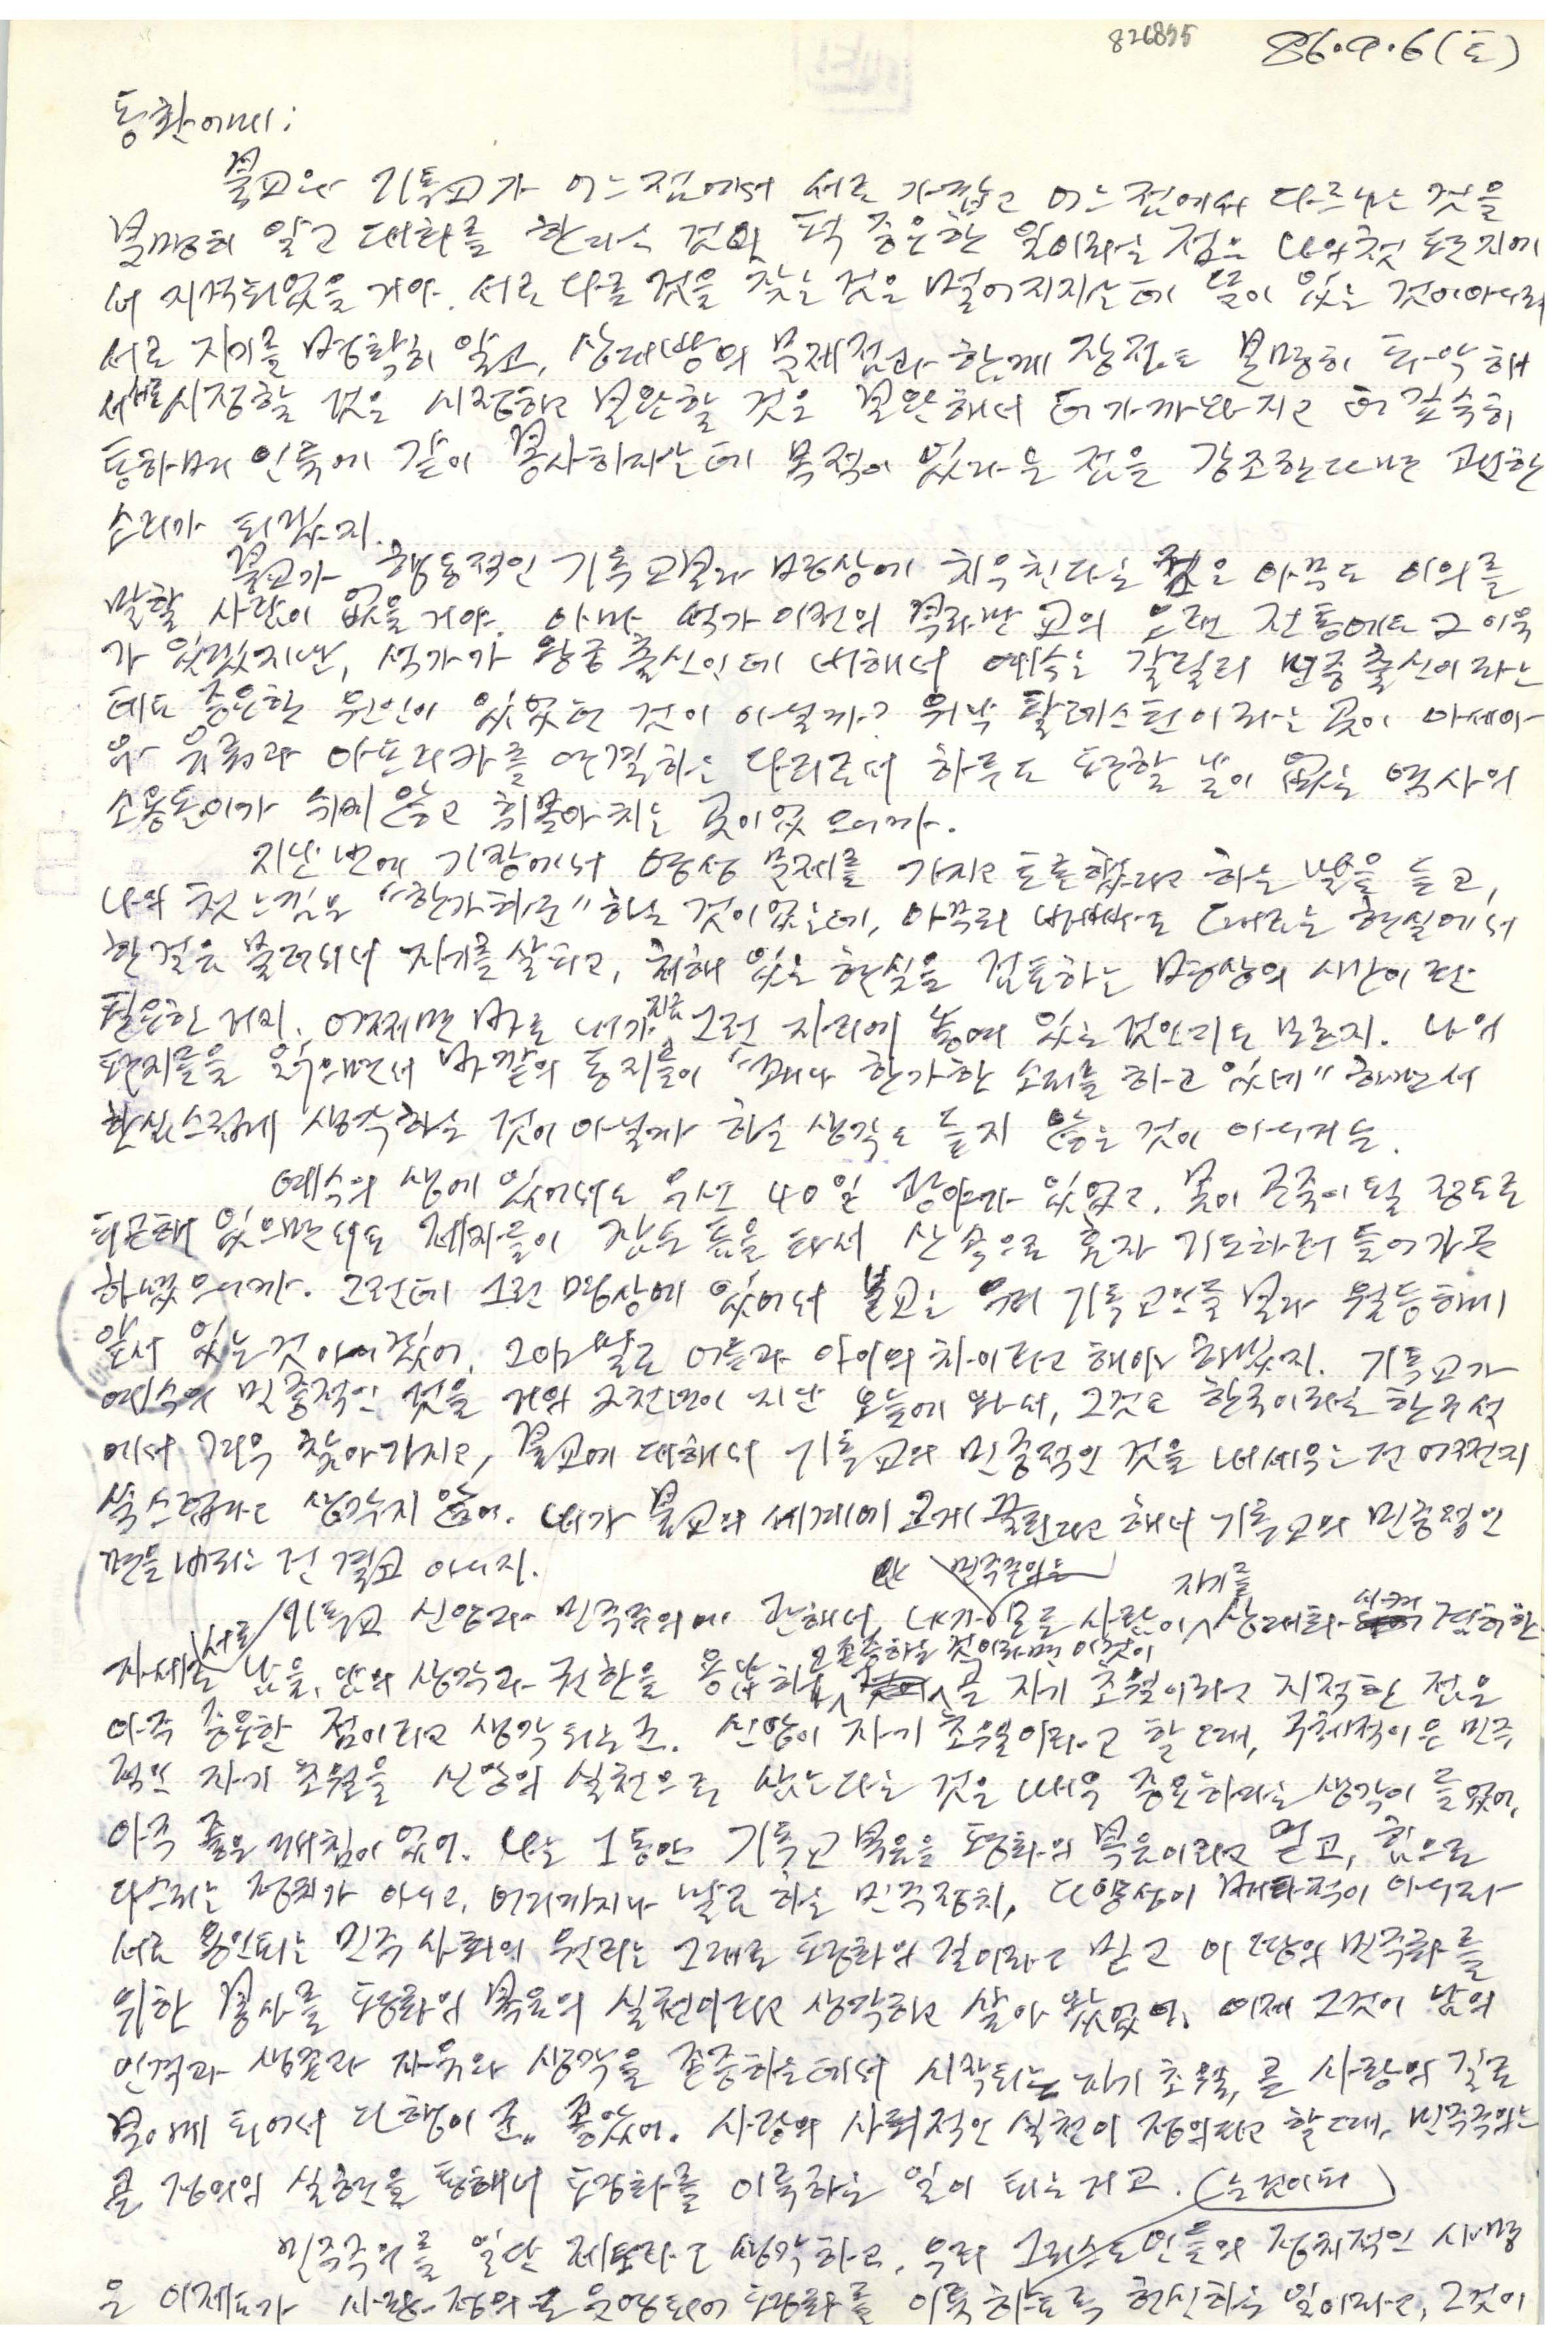 826855
86.9.6(토)
동환에게;
불교와 기독교가 어느 점에서 서로 가깝고 어느 점에서 다르냐는 것을
분명히 알고 대화를 한다는 것이 퍽 중요한 일이라는 점은 나의 첫 편지에
서 지적되었을 거야. 서로 다른 것을 찾는 것은 멀어지자는데 뜻이 있는 것이 아니라
서로 자기를 명확히 알고, 상대방의 문제점과 함께 장점도 분명히 파악해
서 서로 시정할 것은 시정하고 보완할 것은 보완해서 더 가까와지고 더 깊숙히
통하며 인류에 같이 봉사하자는데 목적이 있다는 점을 강조한다면 고번한
소리가 되겠지.
불교가 행동적인 기독교보다 명상에 치우친다는 점은 아무도 이의를
말할 사람이 없을 거야. 아마 석가 이전의 브라만교의 오랜 전통에도 그 이유
가 있겠지만, 석가가 왕궁 출신인데 비해서 예수는 갈릴리 민중 출신이라는
데도 중요한 원인이 있었던 것이 아닐까? 워낙 팔레스틴이라는 곳이 아세아
와 유럽과 아프리카를 연결하는 다리로서 하루도 편할 날이 없는 역사의
소용돌이가 쉬지 않고 휘몰아치는 곳이었으니까.
지난번에 기장에서 영성 문제를 가지고 토론했다고 하는 말을 듣고,
나의 첫 느낌은 “한가하군” 하는 것이었는데, 아무리 바빠도 때로는 현실에서
한걸음 물러나서 자기를 살피고, 처해 있는 현실을 검토하는 명상의 시간이란
필요한 거지. 어쩌면 바로 내가 지금 그런 자리에 놓여 있는 것인지도 모르지. 나의
편지들을 읽으면서 바깥의 동지들이 “꽤나 한가한 소리를 하고 있네” 하면서
한심스럽게 생각하는 것이 아닐까 하는 생각도 들지 않는 것이 아니거든.
예수의 생에 있어서도 우선 40일 광야가 있었고, 몸이 곤죽이 될 정도로
피곤해 있으면서도 제자들이 잠든 틈을 타서 산 속으로 혼자 기도하러 들어가곤
하셨으니까. 그런데 그런 명상에 있어서 불교는 우리 기독교인들보다 월등하게
앞서 있는 것 아니겠어. 그야말로 어른과 아이의 차이라고 해야 하겠지. 기독교가
예수의 민중적인 것을 거의 2천년이 지난 오늘에 와서, 그것도 한국이라는 한구석
에서 겨우 찾아가지고, 불교에 대해서 기독교의 민중적인 것을 내세우는 건 어쩐지
쑥스럽다고 생각지 않어. 내가 불교의 세계에 크게 끌린다고 해서 기독교의 민중적인
면을 버리는 건 결코 아니지.
기독교 신앙과 민주주의에 관해서 네가 민주주의는 모든 사람이 자기를 상대화시켜 겸허한
자세로 서로 남을, 남의 생각과 권한을 용납하고 존중하는 것이라면 이것이 곧 자기 초월이라고 지적한 점은
아주 중요한 점이라고 생각되는군. 신앙이 자기 초월이라고 할 때, 구체적이요 민주
적인 자기 초월을 신앙의 실천으로 삼는다는 것은 매우 중요하다는 생각이 들었어,
아주 좋은 깨침이 있어. 나는 그동안 기독교 복음을 평화의 복음이라고 믿고, 힘으로
다스리는 정치가 아니고, 어디까지나 말로 하는 민주정치, 다양성이 배타적이 아니라
서로 용인되는 민주 사회의 원리는 그대로 평화의 길이라고 믿고 이 땅의 민주화를
위한 봉사를 평화의 복음의 실천이라고 생각하고 살아 왔었어. 이제 그것이 남의
인격과 생존과 자유와 생각을 존중하는데서 시작되는 자기 초월, 곧 사랑의 길로
보이게 되어서 다행이군. 좋았어. 사랑의 사회적인 실천이 정의라고 할 때, 민주주의는
곧 정의의 실현을 통해서 평화를 이룩하는 일이 되는 거고. (는 것이지)
민주주의를 일단 제도라고 생각하고, 우리 그리스도인들의 정치적인 사명
은 이 제도가 사랑-정의로 운영되어 평화를 이룩하도록 헌신하는 일이라고, 그것이